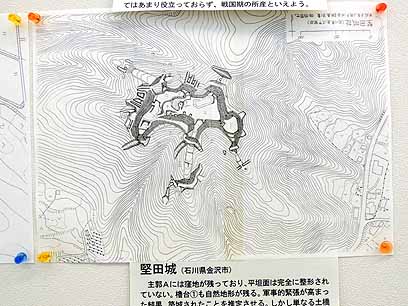 てはあまり役立っておらず、戦国期の所産といえよう。
堅田城（石川県金沢市）
主郭Ａには窪地が残っており、平坦面は完全に整形され
ていない。櫓台①も自然地形が残る。軍事的緊張が高まっ
た結果、築城されたことを推定させる。しかし単なる土橋